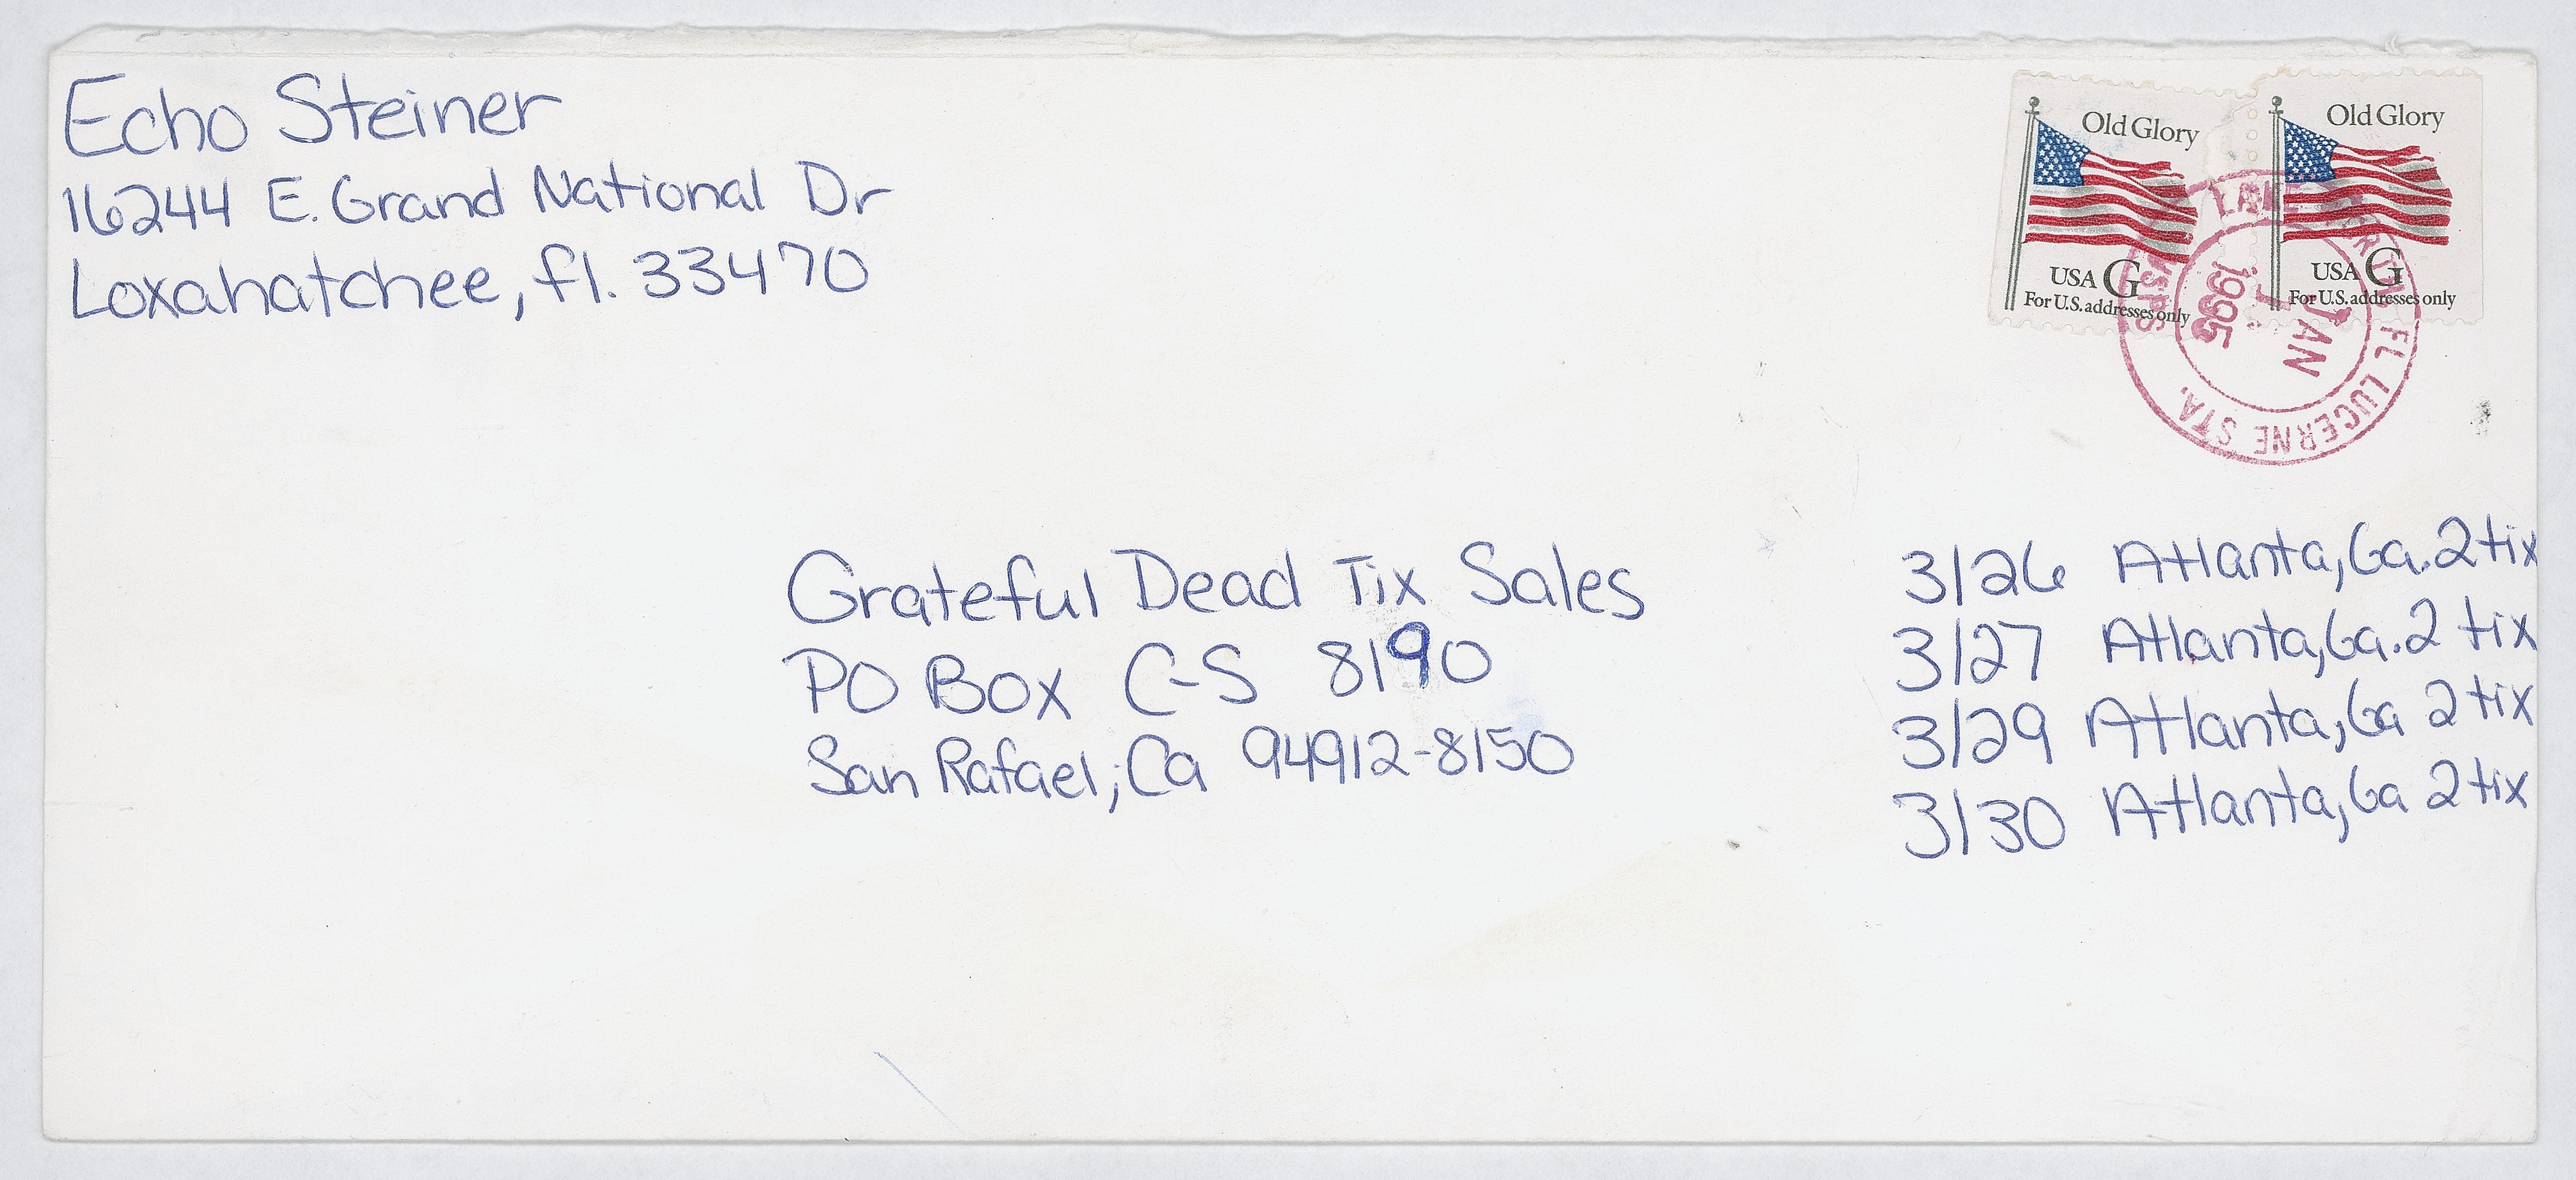 Echo Steiner
16244 E. Grand National Dr
Loxahatchee, fl. 33470
Old Glory
USA G
For U.S. addresses only
Old Glory
USA G
For U.S. addresses only
LAKE WORTH FL LUCERNE STA.
USPS
JAN
1995
Grateful Dead Tix Sales
PO Box C-S 8190
San Rafael, Ca 94912-8150
3/26 Atlanta, Ga. 2 tix
3/27 Atlanta, Ga. 2 tix
3/29 Atlanta, Ga 2 tix
3/30 Atlanta, Ga 2 tix